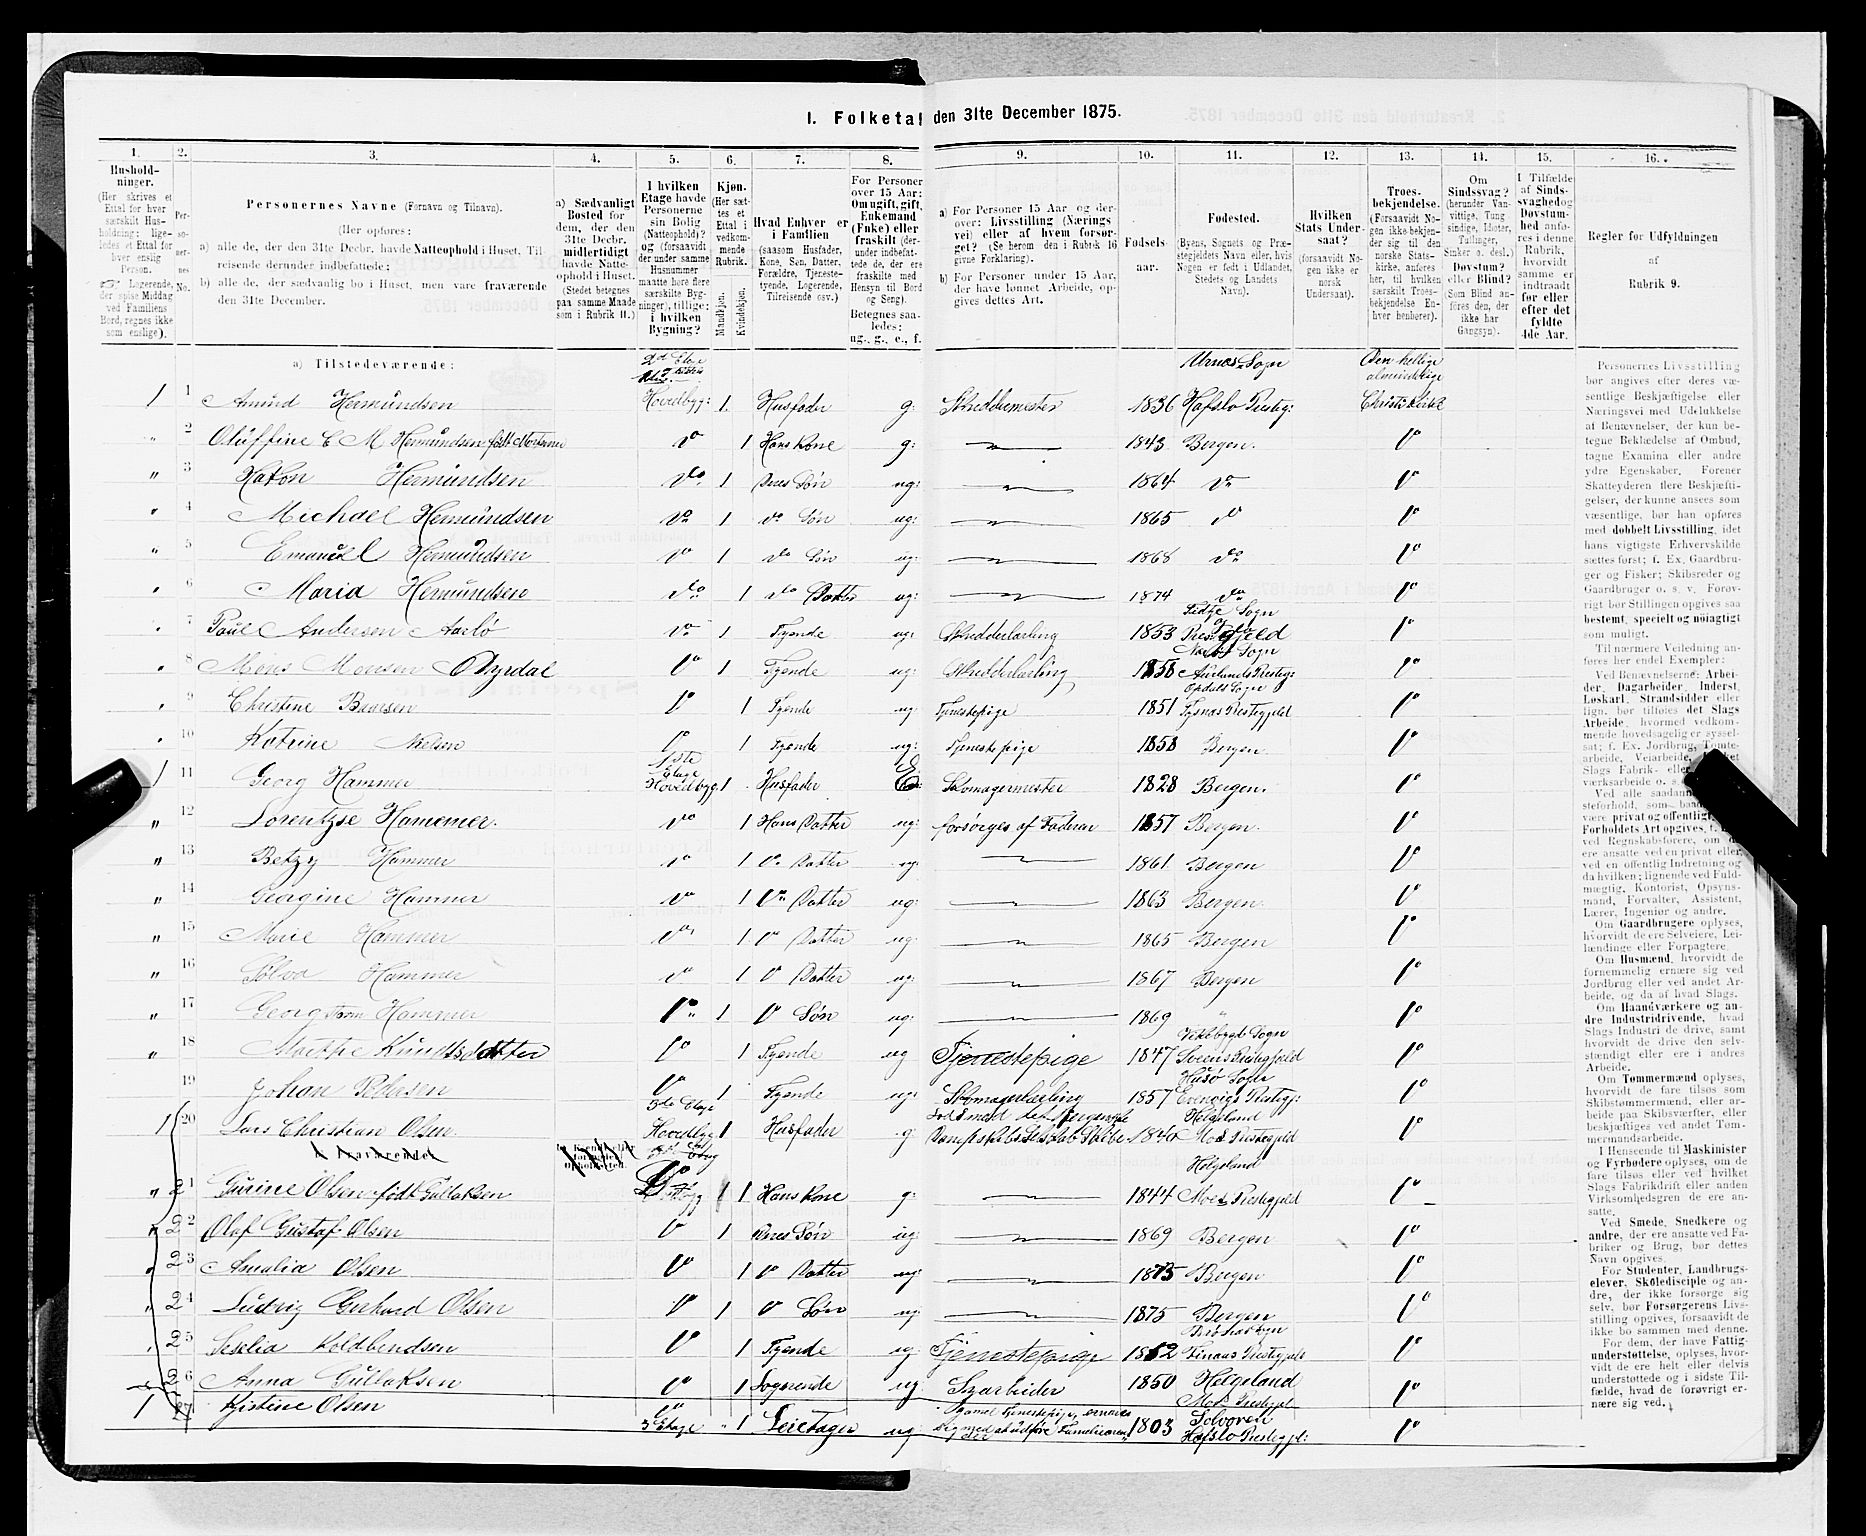 I. Folketal den 31te December 1875.
1. 2. 3. 4. 5. 6. 7. 8. 9. 10. 11. 12. 13. 14. 15. 16.
Hushold-
ninger.
(Her skrives et
Ettal for hver
særskilt Hus-
holdning; lige-
ledes et Ettal for
hver enslig
Person.
Logerende,
der spise Middag
ved Familiens
Bord, regnes ikke
som enslige).
Per-
so-
ner-
nes
No.
Personernes Navne (Fornavn og Tilnavn).
(Her opføres:
a) alle de, der den 31te Decbr. havde Natteophold i Huset, Til-
reisende derunder indbefattede;
b) alle de, der sædvanlig bo i Huset, men vare fraværende
den 31te December.
a) Sædvanligt
Bosted for
dem, der den
31te Decbr.
midlertidigt
havde Natte-
ophold i Huset.
(Stedet betegnes
paa samme Maade
som i Rubrik 11.)
I hvilken
Etage havde
Personerne
sin Bolig
(Natteophold)?
og (forsaavidt
der under samme
Husnummer
maatte høre flere
særskilte Byg-
ninger), tillige:
i hvilken
Bygning?
Kjøn.
(Her sæt-
tes et
Ettal i
vedkom-
mende
Rubrik.
Mandkjøn.
Kvindekjøn.
Hvad Enhver er
i Familien
(saasom Husfader,
Kone, Søn, Datter,
Forældre, Tjeneste-
tyende, Logerende,
Tilreisende osv.)
For Personer
over 15 Aar:
Om ugift, gift,
Enkemand
(Enke) eller
fraskilt (der-
under indbefat-
tede de, der ere
fraskilte med
Hensyn til Bord
og Seng).
Betegnes saa-
ledes:
ug., g., e., f.
a) For Personer 15 Aar og der-
over: Livsstilling (Nærings
vei) eller af hvem forsør-
get? (Se herom den i Rubrik 16
givne Forklaring).
b) For Personer under 15 Aar,
der have lønnet Arbeide, op-
gives dettes Art.
Fødsels-
aar.
Fødested.
(Byens, Sognets og Præ-
stegjeldets Navn eller, hvis
Nogen er født i Udlandet,
Stedets og Landets
Navn).
Hvilken
Stats Under-
saat?
(forsaavidt No-
gen ikke er
norsk
Undersaat).
Troes-
bekjendelse.
(Forsaavidt No-
gen ikke bekjen-
der sig til den
norske Stats-
kirke, anføres
her, til hvilken
særskilt Troes-
bekjendelse En-
hver henhører).
Om
Sindssvag?
(herunder Van-
vittige, Tung-
sindige, Idioter,
Taslinger,
Sinker o. desl.)
Døvstum?
eller Blind?
(Som Blind an-
føres den, der
ikke har
Gangsyn).
I Tilfælde
af Sinds-
svaghed og
Døvstum-
hed anfø-
res i denne
Rubrik,
hvorvidt
samme er
indtraadt
før eller
efter det
fyldte
4de Aar.
Regler for Udfyldningen
af
Rubrik 9.
a) Tilstedeværende: 2d Etage Urnes Sogn Den hellige almindelige
1 1 Amund Hermundsen Hovedbyg: 1. Husfader g: Skreddermester 1836 Hafslo Prestg: Christi Kirke
" 2 Oluffine C M Hermundsen født do 1 Hans Kone g: 1843 Bergen. Do
" 3 Hakon Hermundsen do 1 Deres Søn ug: 1864 do Do
" 4 Michael Hermundsen do 1 do Søn ug: 1865 do Do
" 5 Emanuel Hermundsen do 1 do Søn ug: 1868 do Do
" 6 Maria Hermundsen do 1 do Datter ug: 1874 do Do
" 7 Paul Andersen Aarlø do 1 Tyende ug: Skredderlærling 1853 Sogn Do
" 8 Mons Monsen Dyrdal Do 1 Tyende ug: Skredderlærling 1858 Sogn Aurlands Prestg: Do
" 9 Christine Baarsen Do 1 Tyende ug Tjenestepige 1851 Opdals Sogn Tysnæs Prestegjeld Do
" 10 Katrine Nielsen Do 1 Tyende ug: Tjenestepige 1858 Bergen Do
1 11 Georg Hammer 1ste Etage Hovedbyg. 1 Husfader E: Skomagermester 1828 Bergen. Do
" 12 Lorentzse Hammer. do 1 Hans Datter ug: forsørges af Faderen 1857 Bergen. Do
" 13 Betzy Hammer do 1 do Datter ug: 1861 Bergen Do
" 14 Georgine Hammer do 1 Do Datter ug: 1863 Bergen. Do
" 15 Marie Hammer do 1 Do Datter ug: 1865 Bergen Do
" 16 Sølva Hammer do 1 Do Datter ug: 1867 Bergen Do
" 17 Georg Hammer Do 1 Do Søn ug: 1869 " Do
" 18 Marthe Knudtsdatter Do 1 Tyende ug Tjenestepige 1847 Vikebygd Sogn Prestegjeld Do
19 Johan Pedersen Do 1 Tyende ug: Skomagerlærling 1857 Husø Sogn Evenvigs Prestegj: Do
1 20 Lars Christian Olsen. 3de Etage Hovedbyg 1 Husfader g Dampskibs Selskab Skibe 1840 Helgeland Moe Prestegjeld Do
" 21 Gurine Olsen født Gullaksen Do 1 Hans Kone g: 1844 Helgeland Moe Prestegjeld Do
" 22 Olaf Gustaf Olsen Do 1 Deres Søn ug: 1869 Bergen Do
" 23 Amalia Olsen Do 1 Do Datter ug: 1873 Bergen Do
" 24 Ludvig Gerhard Olsen Do 1 Do Søn ug: 1875 Bergen Do
" 25 Seselia Koldbendsen Do 1 Tyende ug Tjenestepige 1852 Finaas Prestegjeld Do
" 26 Anna Gullaksen Do 1 Logerende ug. Syarbeider 1850 Helgeland Moe Prestegjel Do
1 27 Kjstine Olsen 3 Etage " 1 Leietager ug: Gamel Tjenestepige, 1803 Solvoren Hafslo Prestegjel: Do
Personernes Livsstilling
bør angives efter deres væ-
sentlige Beskjæftigelse eller
Næringsvei med Udelukkelse
af Benævnelser, der kun be-
tegne Beklædelse af Ombud,
tagne Examina eller andre
ydre Egenskaber. Forener
Skatteyderen flere Beskjæfti-
gelser, der kunne ansees som
væsentlige, bør han opføres
med dobbelt Livsstilling, idet
hans vigtigste Erhvervskilde
sættes først; f. Ex. Gaardbru-
ger og Fisker; Skibsreder og
Gaardbruger o. s. v. Forøv-
rigt bør Stillingen opgives saa
bestemt, specielt og nøiagtigt
som muligt.
Til nærmere Veiledning an-
føres her endel Exempler:
Ved Benævnelserne: Arbei-
der, Dagarbeider, Inderst,
Løskarl, Strandsidder eller
lign. bør tilføies det Slags
Arbeide, hvormed vedkom-
mende hovedsagelig er syssel-
sat; f. Ex. Jordbrug, Tomte-
arbeide, Veiarbeide,
Slags Fabrik- eller
værksarbeide o. s.
Ved alle saadanne
steforhold, som baade
være privat og offentligt,
Forholdets Art opgives, f.
ved Regnskabsførere, om
ere ansatte ved en privat eller
ved en offentlig Indretning og
da hvilken; lignende ved Fuld-
mægtig, Kontorist, Opsyns-
mand, Forvalter, Assistent,
Lærer, Ingeniør og andre.
Om Gaardbrugere oplyses,
hvorvidt de ere Selveiere, Lei-
lændinge eller Forpagtere.
Om Husmænd, hvorvidt de
fornemmelig ernære sig ved
Jordbrug eller ved andet Ar-
beide, og da af hvad Slags.
Om Haandværkere og an-
dre Industridrivende, hvad
Slags Industri de drive, samt
hvorvidt de drive den selv-
stændigt eller ere i andres
Arbeide.
Om Tømmermænd oplyses,
hvorvidt de fare tilsøs som
Skibstømmermænd, eller ar-
beide paa Skibsværfter, eller
beskjæftiges ved andet Tøm-
mermandsarbeide.
I Henseende til Maskinister
og Fyrbødere oplyses, om de
fare tilsøs eller ved hvilket
Slags Fabrikdrift eller anden
Virksomhedsgren de ere an-
satte.
Ved Smede, Snedkere og
andre, der ere ansatte ved Fa-
briker og Brug, bør dettes
Navn opgives.
For Studenter, Landbrugs-
elever, Skoledisciple og an-
dre, der ikke forsørge sig
selv, bør Forsørgerens Livs-
stilling opgives, forsaavidt de
ikke bo sammen med denne.
For dem, der have Fattig-
understøttelse, oplyses, hvor-
vidt de ere helt eller delvis
understøttede og i sidste Til-
fælde, hvad de forøvrigt er-
nære sig ved.